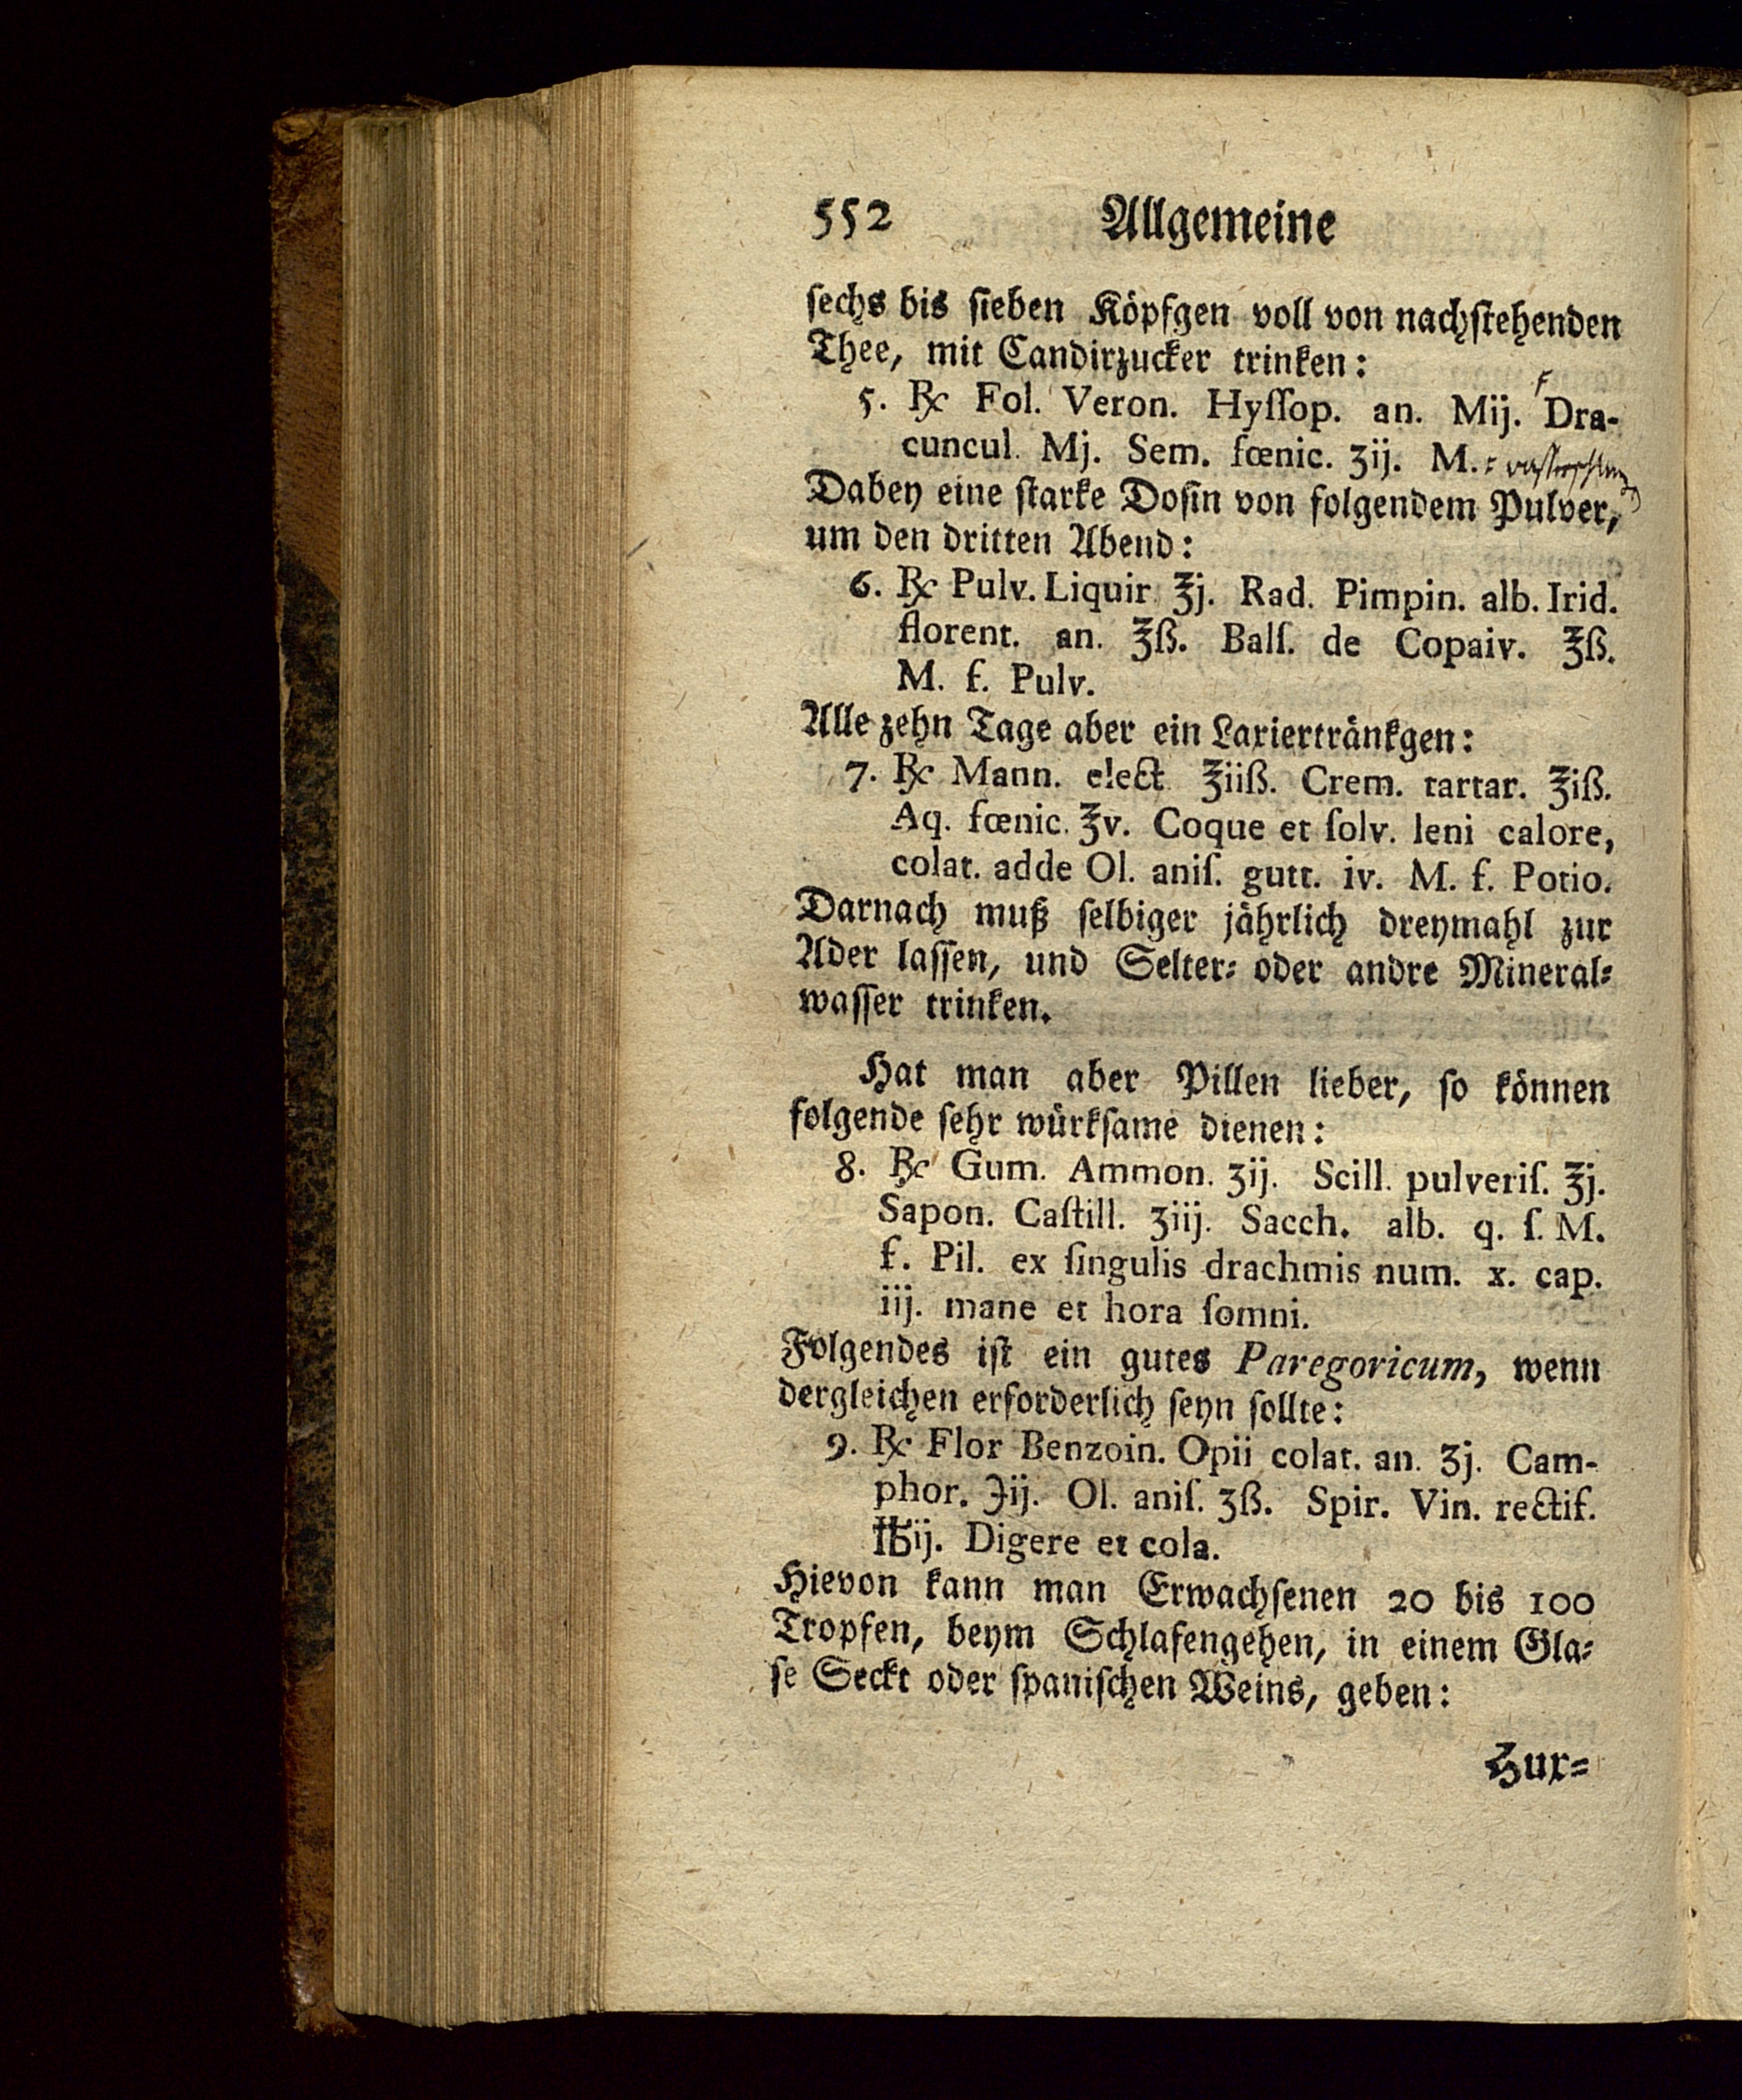 552 Allgemeine
ſechs bis ſieben Köpfgen voll von nachſtehenden
Thee, mit Candirzucker trinken:
5. ℞ Fol. Veron. Hyſſop. an. Mij. Dra-
cuncul. Mj. Sem. fœnic. ʒij. M.
Dabey eine ſtarke Doſin von folgendem Pulver,
um den dritten Abend:
6. ℞ Pulv. Liquir ℥j. Rad. Pimpin. alb. Irid.
florent. an. ℥ß. Balſ. de Copaiv. ℥ß.
M. f. Pulv.
Alle zehn Tage aber ein Laxiertränkgen:
7. ℞ Mann. elect ℥iiß. Crem. tartar. ℥iß.
Aq. fœnic. ℥v. Coque et ſolv. leni calore,
colat. adde Ol. aniſ. gutt. iv. M. f. Potio.
Darnach muß ſelbiger jährlich dreymahl zur
Ader laſſen, und Selter⸗ oder andre Mineral⸗
waſſer trinken.
Hat man aber Pillen lieber, ſo können
folgende ſehr würkſame dienen:
8. ℞ Gum. Ammon. ʒij. Scill. pulveriſ. ℥j.
Sapon. Caſtill. ʒiij. Sacch. alb. q. ſ. M.
f. Pil. ex ſingulis drachmis num. x. cap.
iij. mane et hora ſomni.
Folgendes iſt ein gutes Paregoricum, wenn
dergleichen erforderlich ſeyn ſollte:
9. ℞ Flor Benzoin. Opii colat. an. ʒj. Cam-
phor. ℈ij. Ol. aniſ. ʒß. Spir. Vin. rectif.
℔ij. Digere et cola.
Hievon kann man Erwachſenen 20 bis 100
Tropfen, beym Schlafengehen, in einem Gla⸗
ſe Seckt oder ſpaniſchen Weins, geben:
Zur⸗